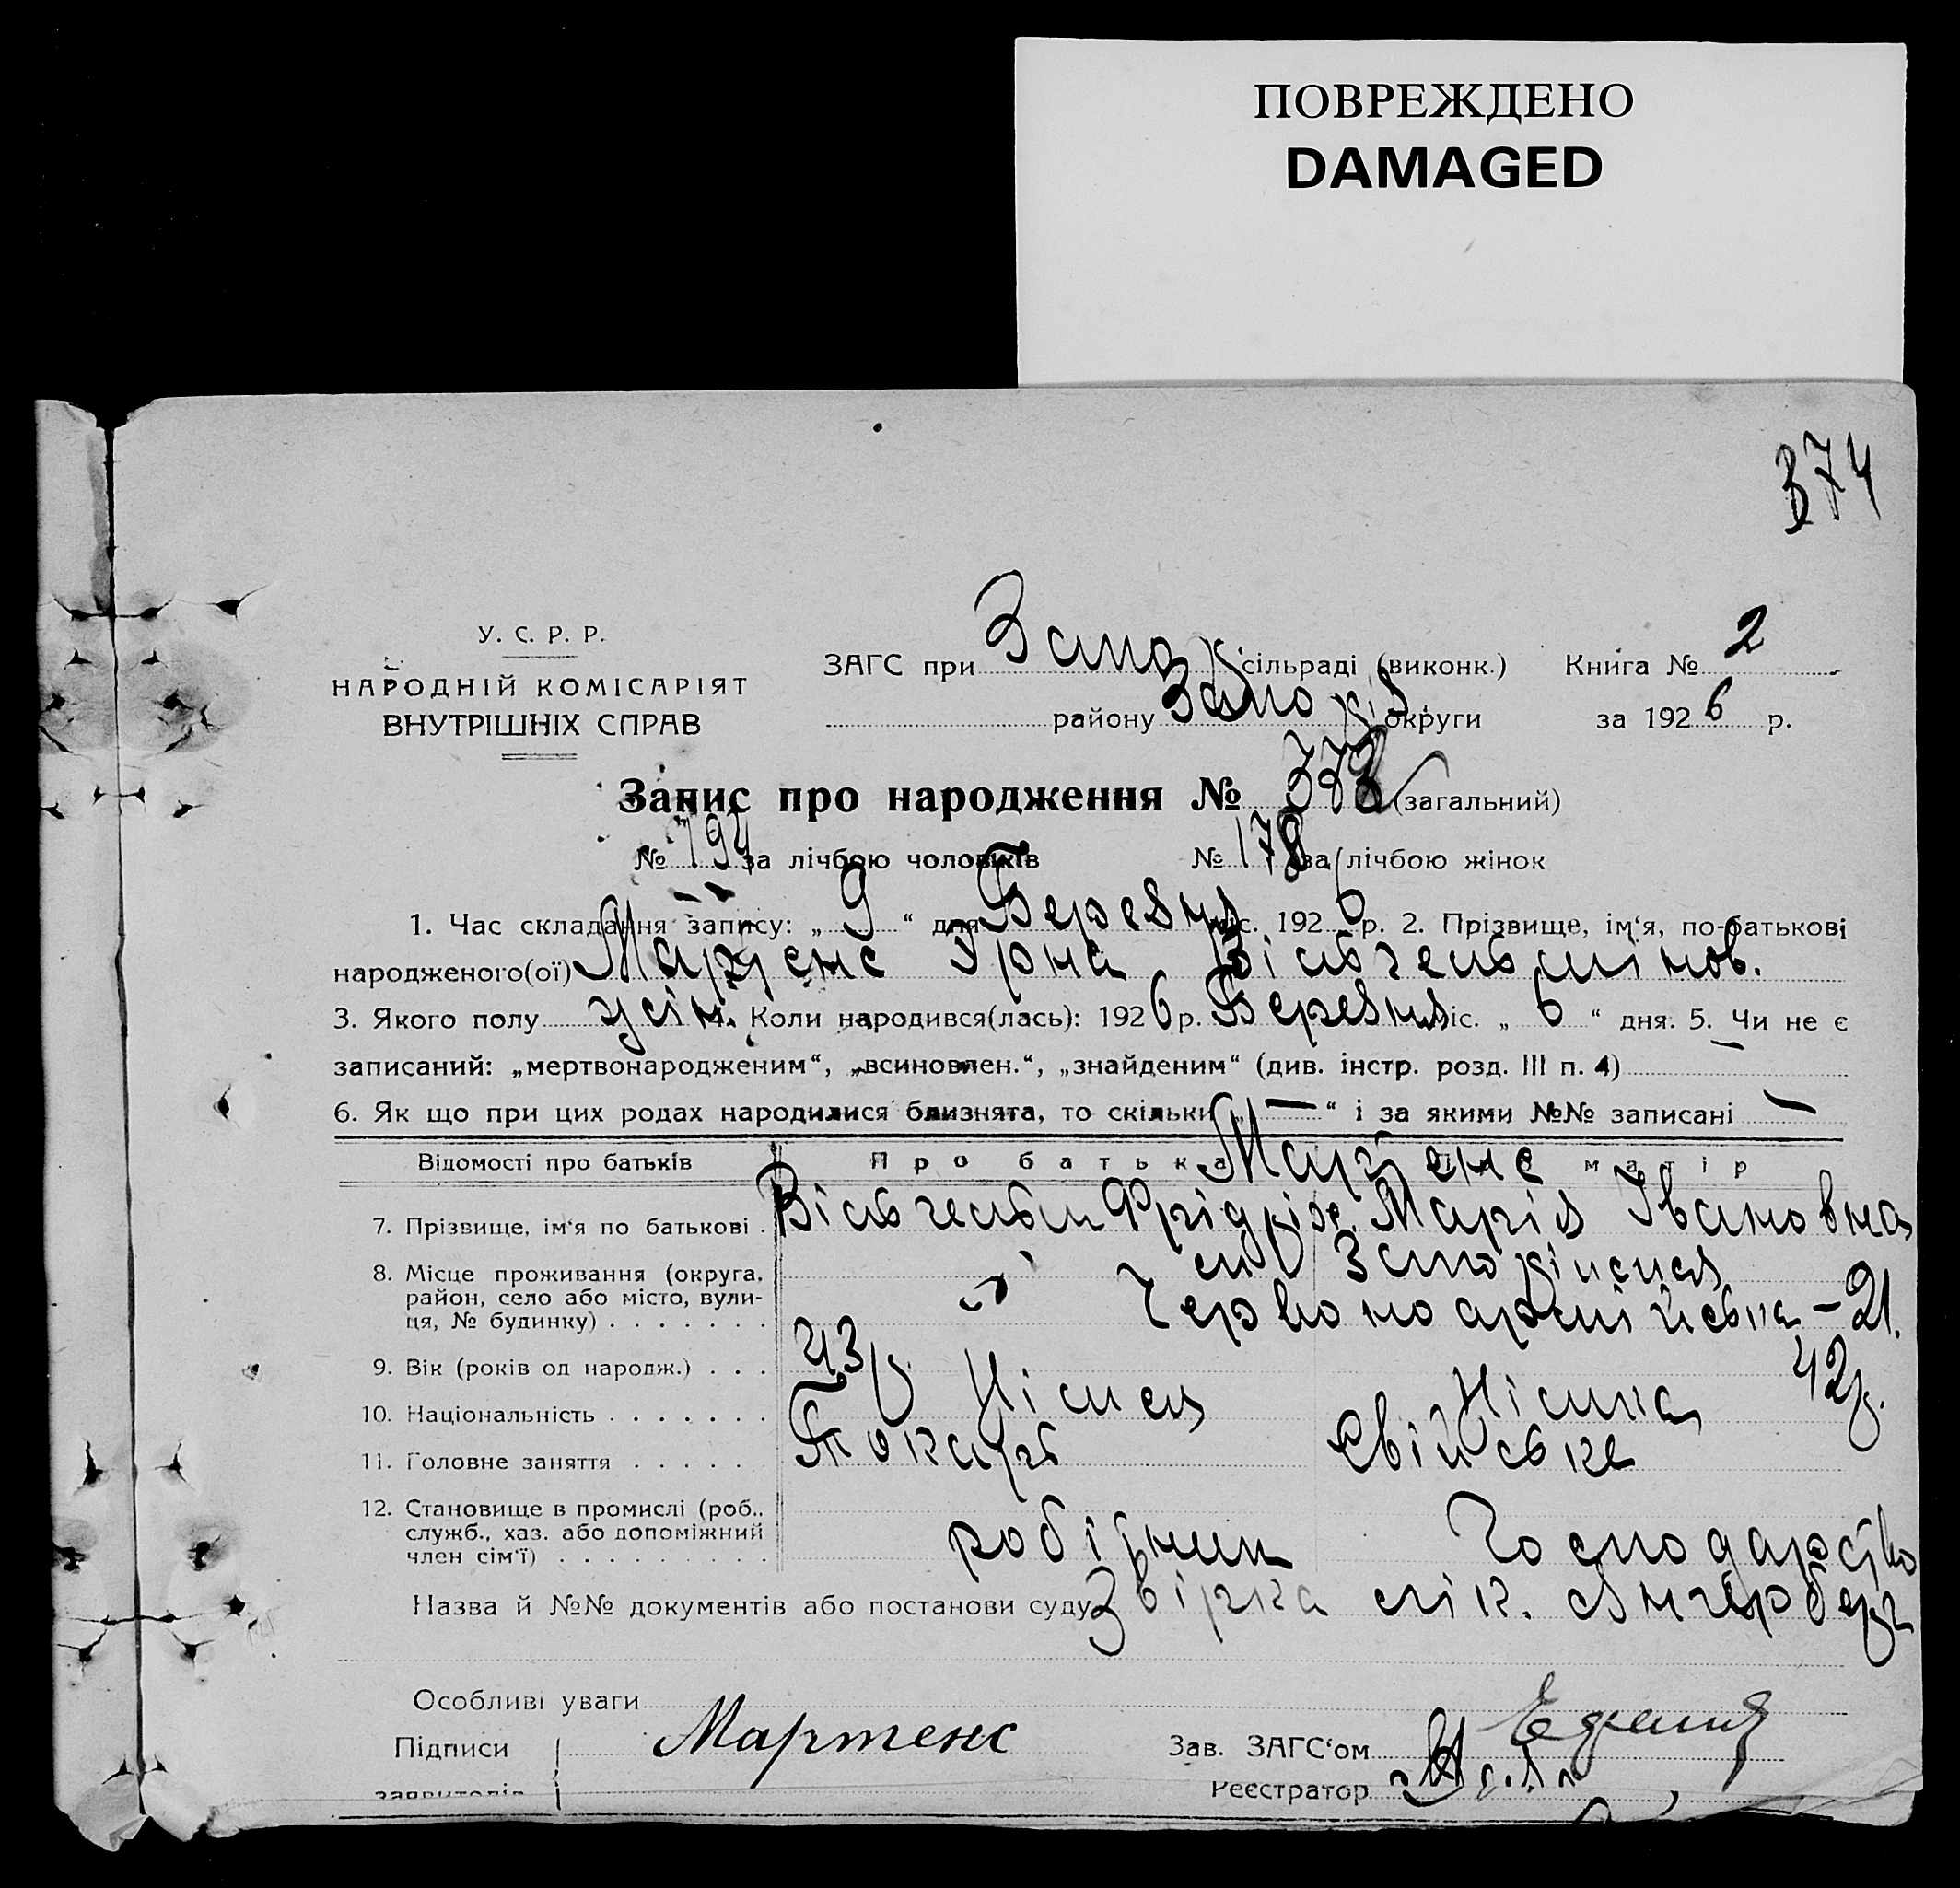 ПОВРЕЖДЕНО
DAMAGED
374
У. С. Р. Р.
НАРОДНІЙ КОМІСАРІЯТ
ВНУТРІШНІХ СПРАВ
ЗАГС при Запор сільраді (виконк.) Книга № 2
району Запоріз. округи за 1926 р.
Запис про народження № (загальний)
№ за лічбою чоловиків № 178 за лічбою жінок
1. Час складання запису: „ 9 “ дня Березня міс. 1926 р. 2. Прізвище, ім‘я, по-батькові
народженого(ої) Мартенс Ірна Вільгельмінов.
3. Якого полу жін. 4. Коли народився(лась): 1926 р. Березня міс. „ 6 “ дня. 5. Чи не є
записаний: „мертвонародженим“, „всиновлен.“, „знайденим“ (див. інстр. розд. III п. 4) —
6. Як що при цих родах народилися близнята, то скільки „ — “ і за якими №№ записані —
Відомості про батьків Про батька Про матір
Мартенс
7. Прізвище, ім‘я по батькові . Вільгельм Фрідріх. Марія Івановна
8. Місце проживання (округа,
район, село або місто, вули-
ця, № будинку) . . . . . . .
м Запоріжжя
Червоноармійська – 21.
9. Вік (років од народж.) . . . 43 р. 42 р.
10. Національність . . . . . . . Німец Німка
11. Головне заняття . . . . . . Токарь Свійське
12. Становище в промислі (роб..
служб., хаз. або допоміжний
член сім‘ї) . . . . . . . . .
робітник Господарство
Назва й №№ документів або постанови суду Звірка лік.
Особливі уваги
Підписи Мартенс Зав. ЗАГС‘ом
заявителів Реєстратор